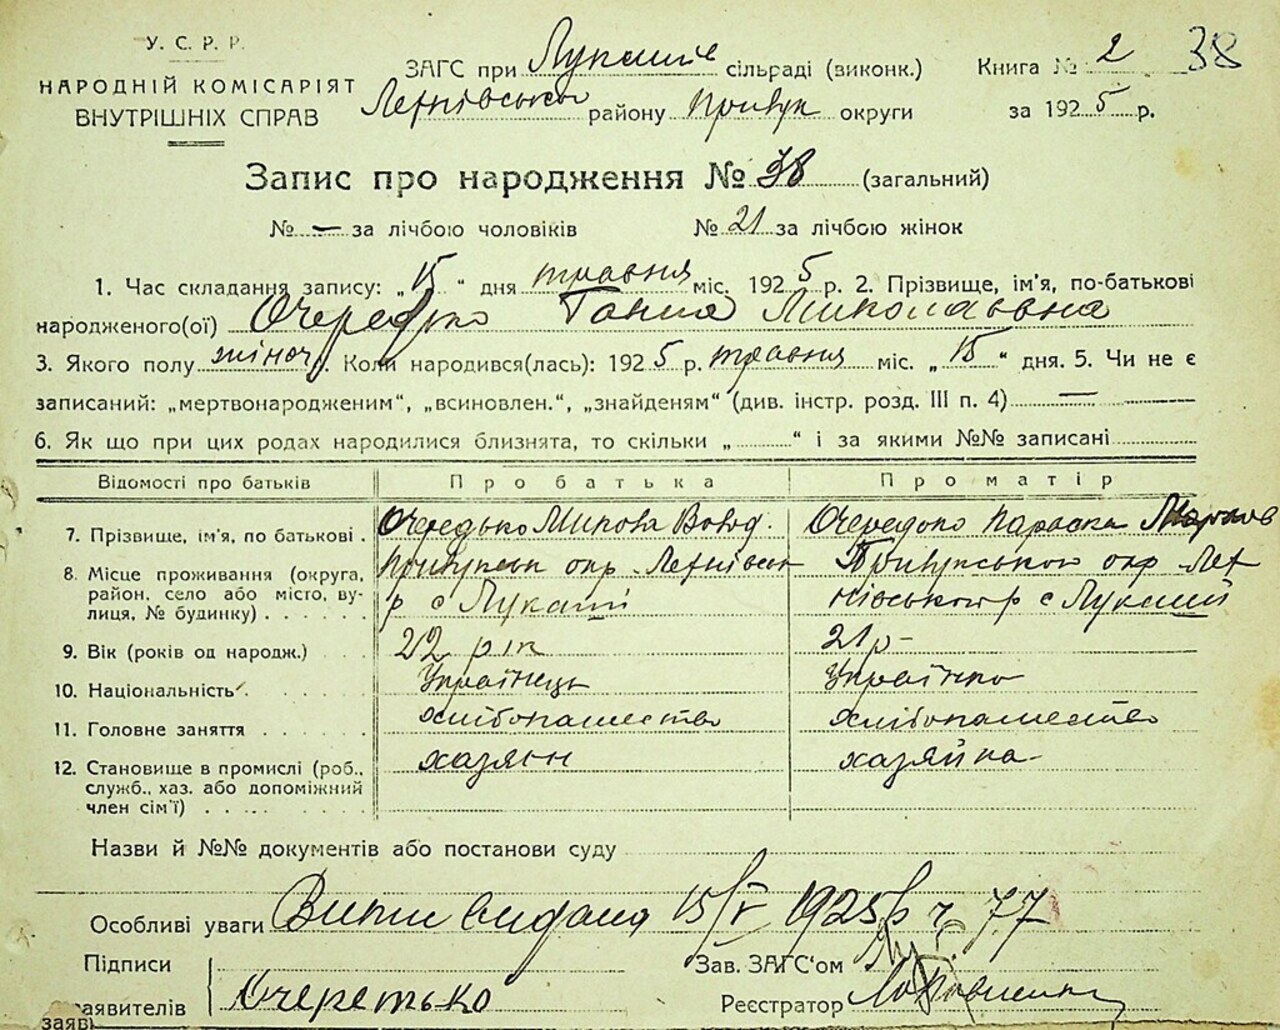 У. С. Р. Р.
НАРОДНІЙ КОМІСАРІЯТ
ВНУТРІШНІХ СПРАВ
ЗАГС при Лукашів сільраді (виконк.)
Книга № 2 38
району Прилук округи
за 1925 р.
Запис про народження № 38 (загальний)
№ — за лічбою чоловіків № 21 за лічбою жінок
1. Час складання запису: „15“ дня травня міс. 1925 р. 2. Прізвище, ім'я, по-батькові
народженого(ої) Очередько Ганна Миколаьвна
3. Якого полу жіноч. Коли народився(лась): 1925 р. травня міс. „15“ дня. 5. Чи не є
записаний: „мертвонародженим“, „всиновлен.“, „знайденям“ (див. інстр. розд. III п. 4) —
6. Як що при цих родах народилися близнята, то скільки „ “ і за якими №№ записані
Відомості про батьків Про батька Про матір
7. Прізвище, ім'я, по батькові . Очередько Микола Очередько Параска
8. Місце проживання (округа,
район, село або місто, вулиця, № будинку) . . . . . . р с Лукаші р с Лукаші
9. Вік (років од народж.) 22 21 р
10. Національність . Українець Українка
11. Головне заняття хлібопашество хлібопашество
12. Становище в промислі (роб.,
служб., хаз. або допоміжний
член сім'ї) хазяїн хазяйка
Назви й №№ документів або постанови суду
Особливі уваги видана 15/V 1925 р ч. 77
Підписи
заявителів Очеретько
Зав. ЗАГС'ом
Реєстратор
заяві